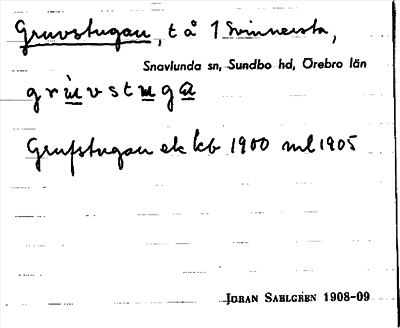 Gruvstugan, t å 1 Svinnersta,
Snavlunda sn, Sundbo hd, Örebro län
gruvstuga
Grufstugan ek kb 1900 ml 1905
Joran Sahlgren 1908-09